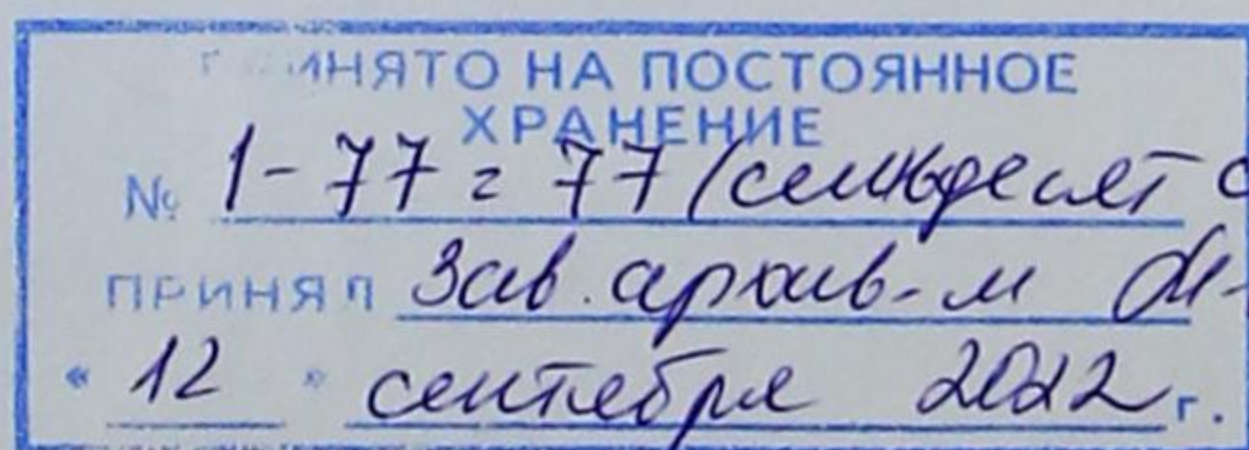 ПРИНЯТО НА ПОСТОЯННОЕ
ХРАНЕНИЕ
№ 1-77 = 77 (семьдесят с
ПРИНЯЛ Зав. архив-м
« 12 » сентября 2022 г.